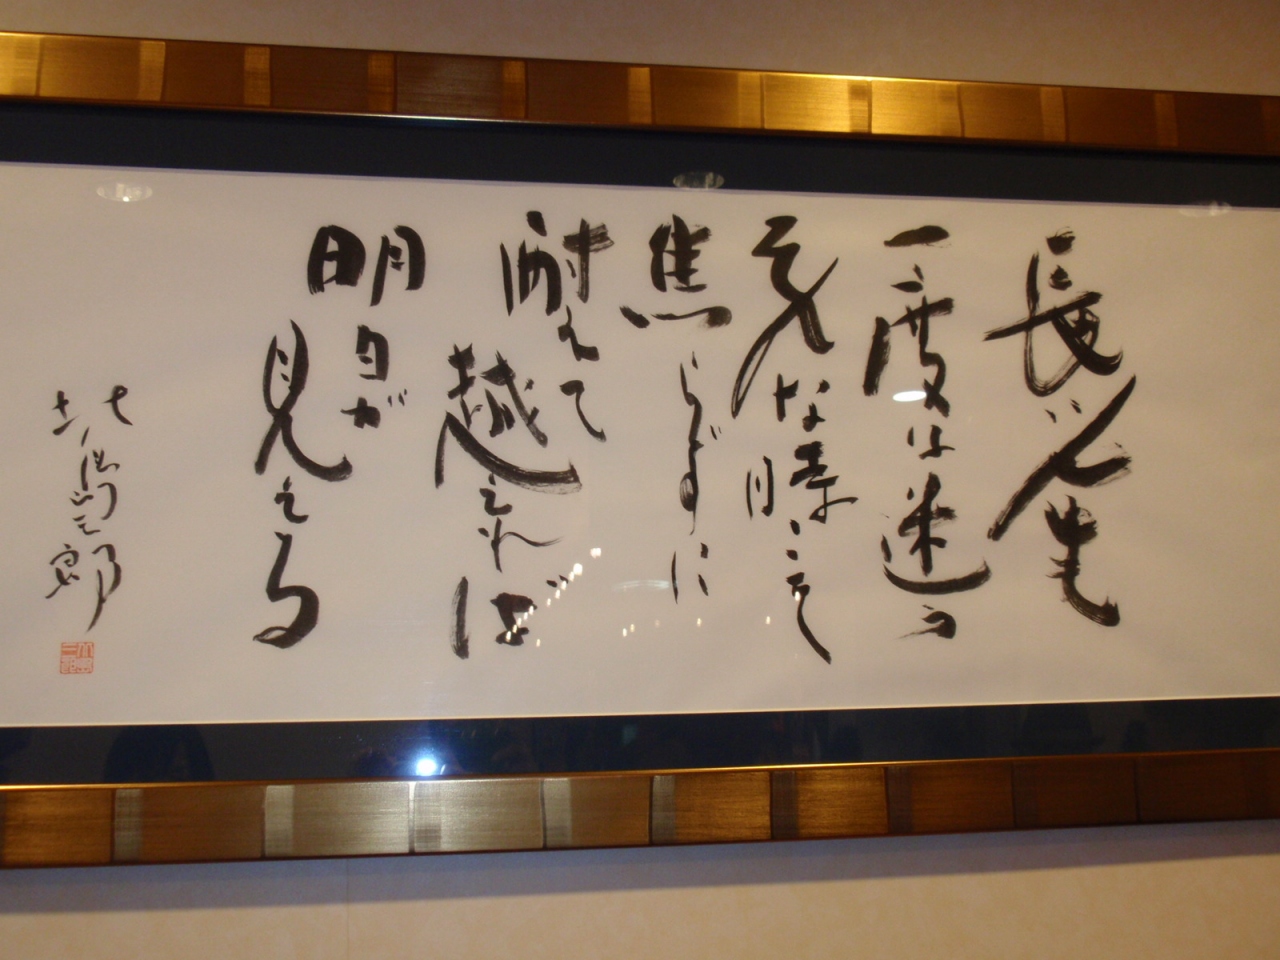 長い人生
一、二度は迷う
そんな時こそ
焦らずに
耐えて
越えれば
明日が
見える
北島三郎